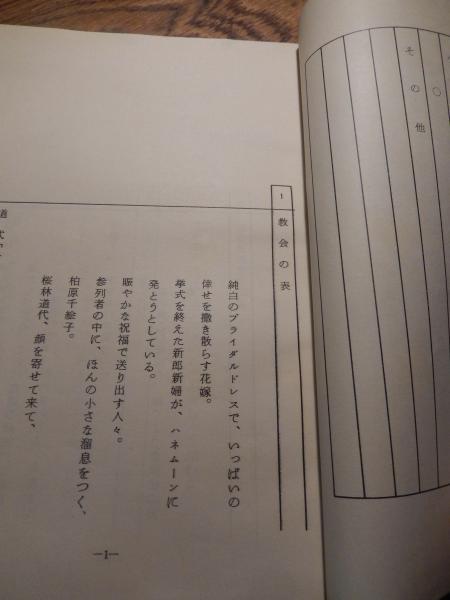 その他
〇
1 教会の表
純白のブライダルドレスで、いっぱいの
倖せを撒き散らす花嫁。
挙式を終えた新郎新婦が、ハネムーンに
発とうとしている。
賑やかな祝福で送り出す人々。
参列者の中に、ほんの小さな溜息をつく、
柏原千絵子。
桜林道代、顔を寄せて来て、
道代
—1—